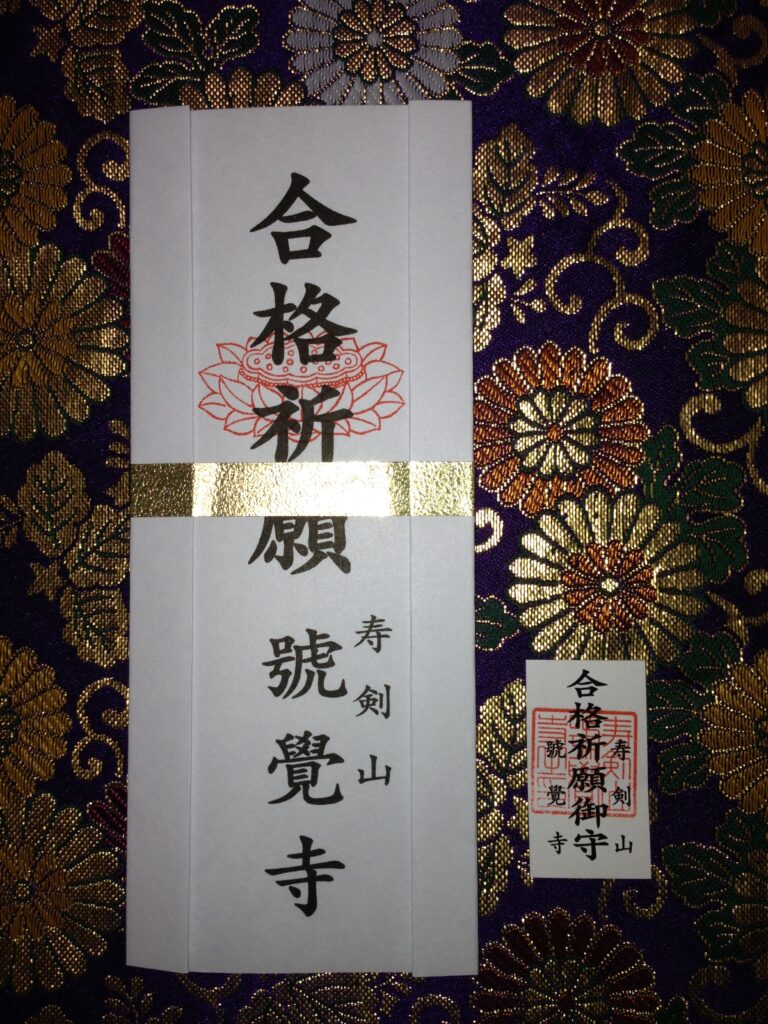 合格祈願
寿剣山
號覺寺
合格祈願御守
寿剣山
號覺寺